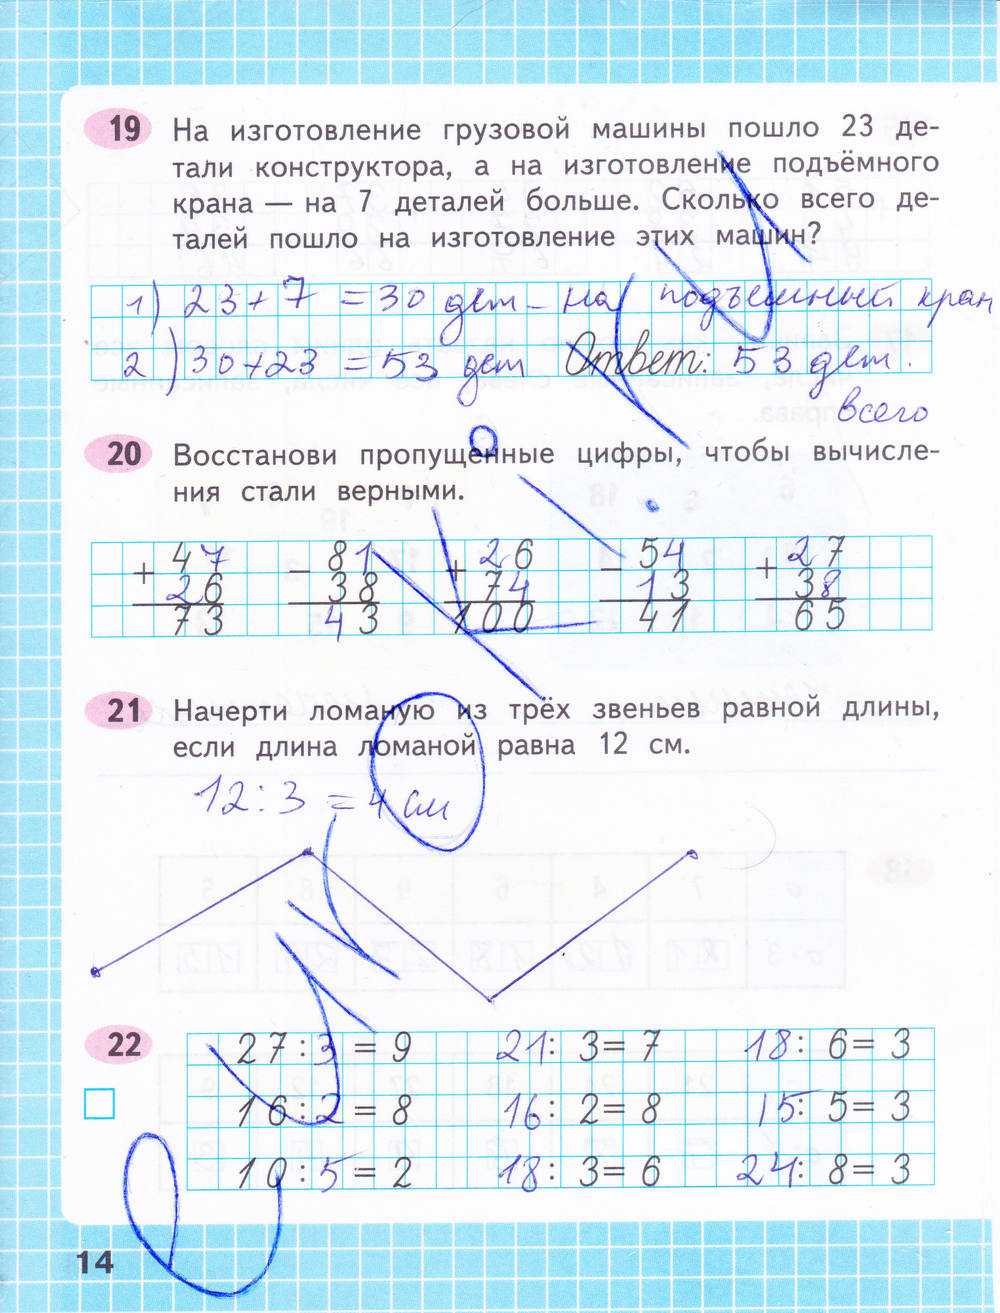 19 На изготовление грузовой машины пошло 23 де-
тали конструктора, а на изготовление подъёмного
крана — на 7 деталей больше. Сколько всего де-
талей пошло на изготовление этих машин?
1) 23 + 7 = 30 дет – на подъемный кран
2) 30 + 23 = 53 дет Ответ: 53 дет.
всего
20 Восстанови пропущенные цифры, чтобы вычисле-
ния стали верными.
+ 47 − 81 + 26 − 54 + 27
26 38 74 13 38
73 43 100 41 65
21 Начерти ломаную из трёх звеньев равной длины,
если длина ломаной равна 12 см.
12 : 3 = 4 см
22 27 : 3 = 9 21 : 3 = 7 18 : 6 = 3
16 : 2 = 8 16 : 2 = 8 15 : 5 = 3
10 : 5 = 2 18 : 3 = 6 24 : 8 = 3
14